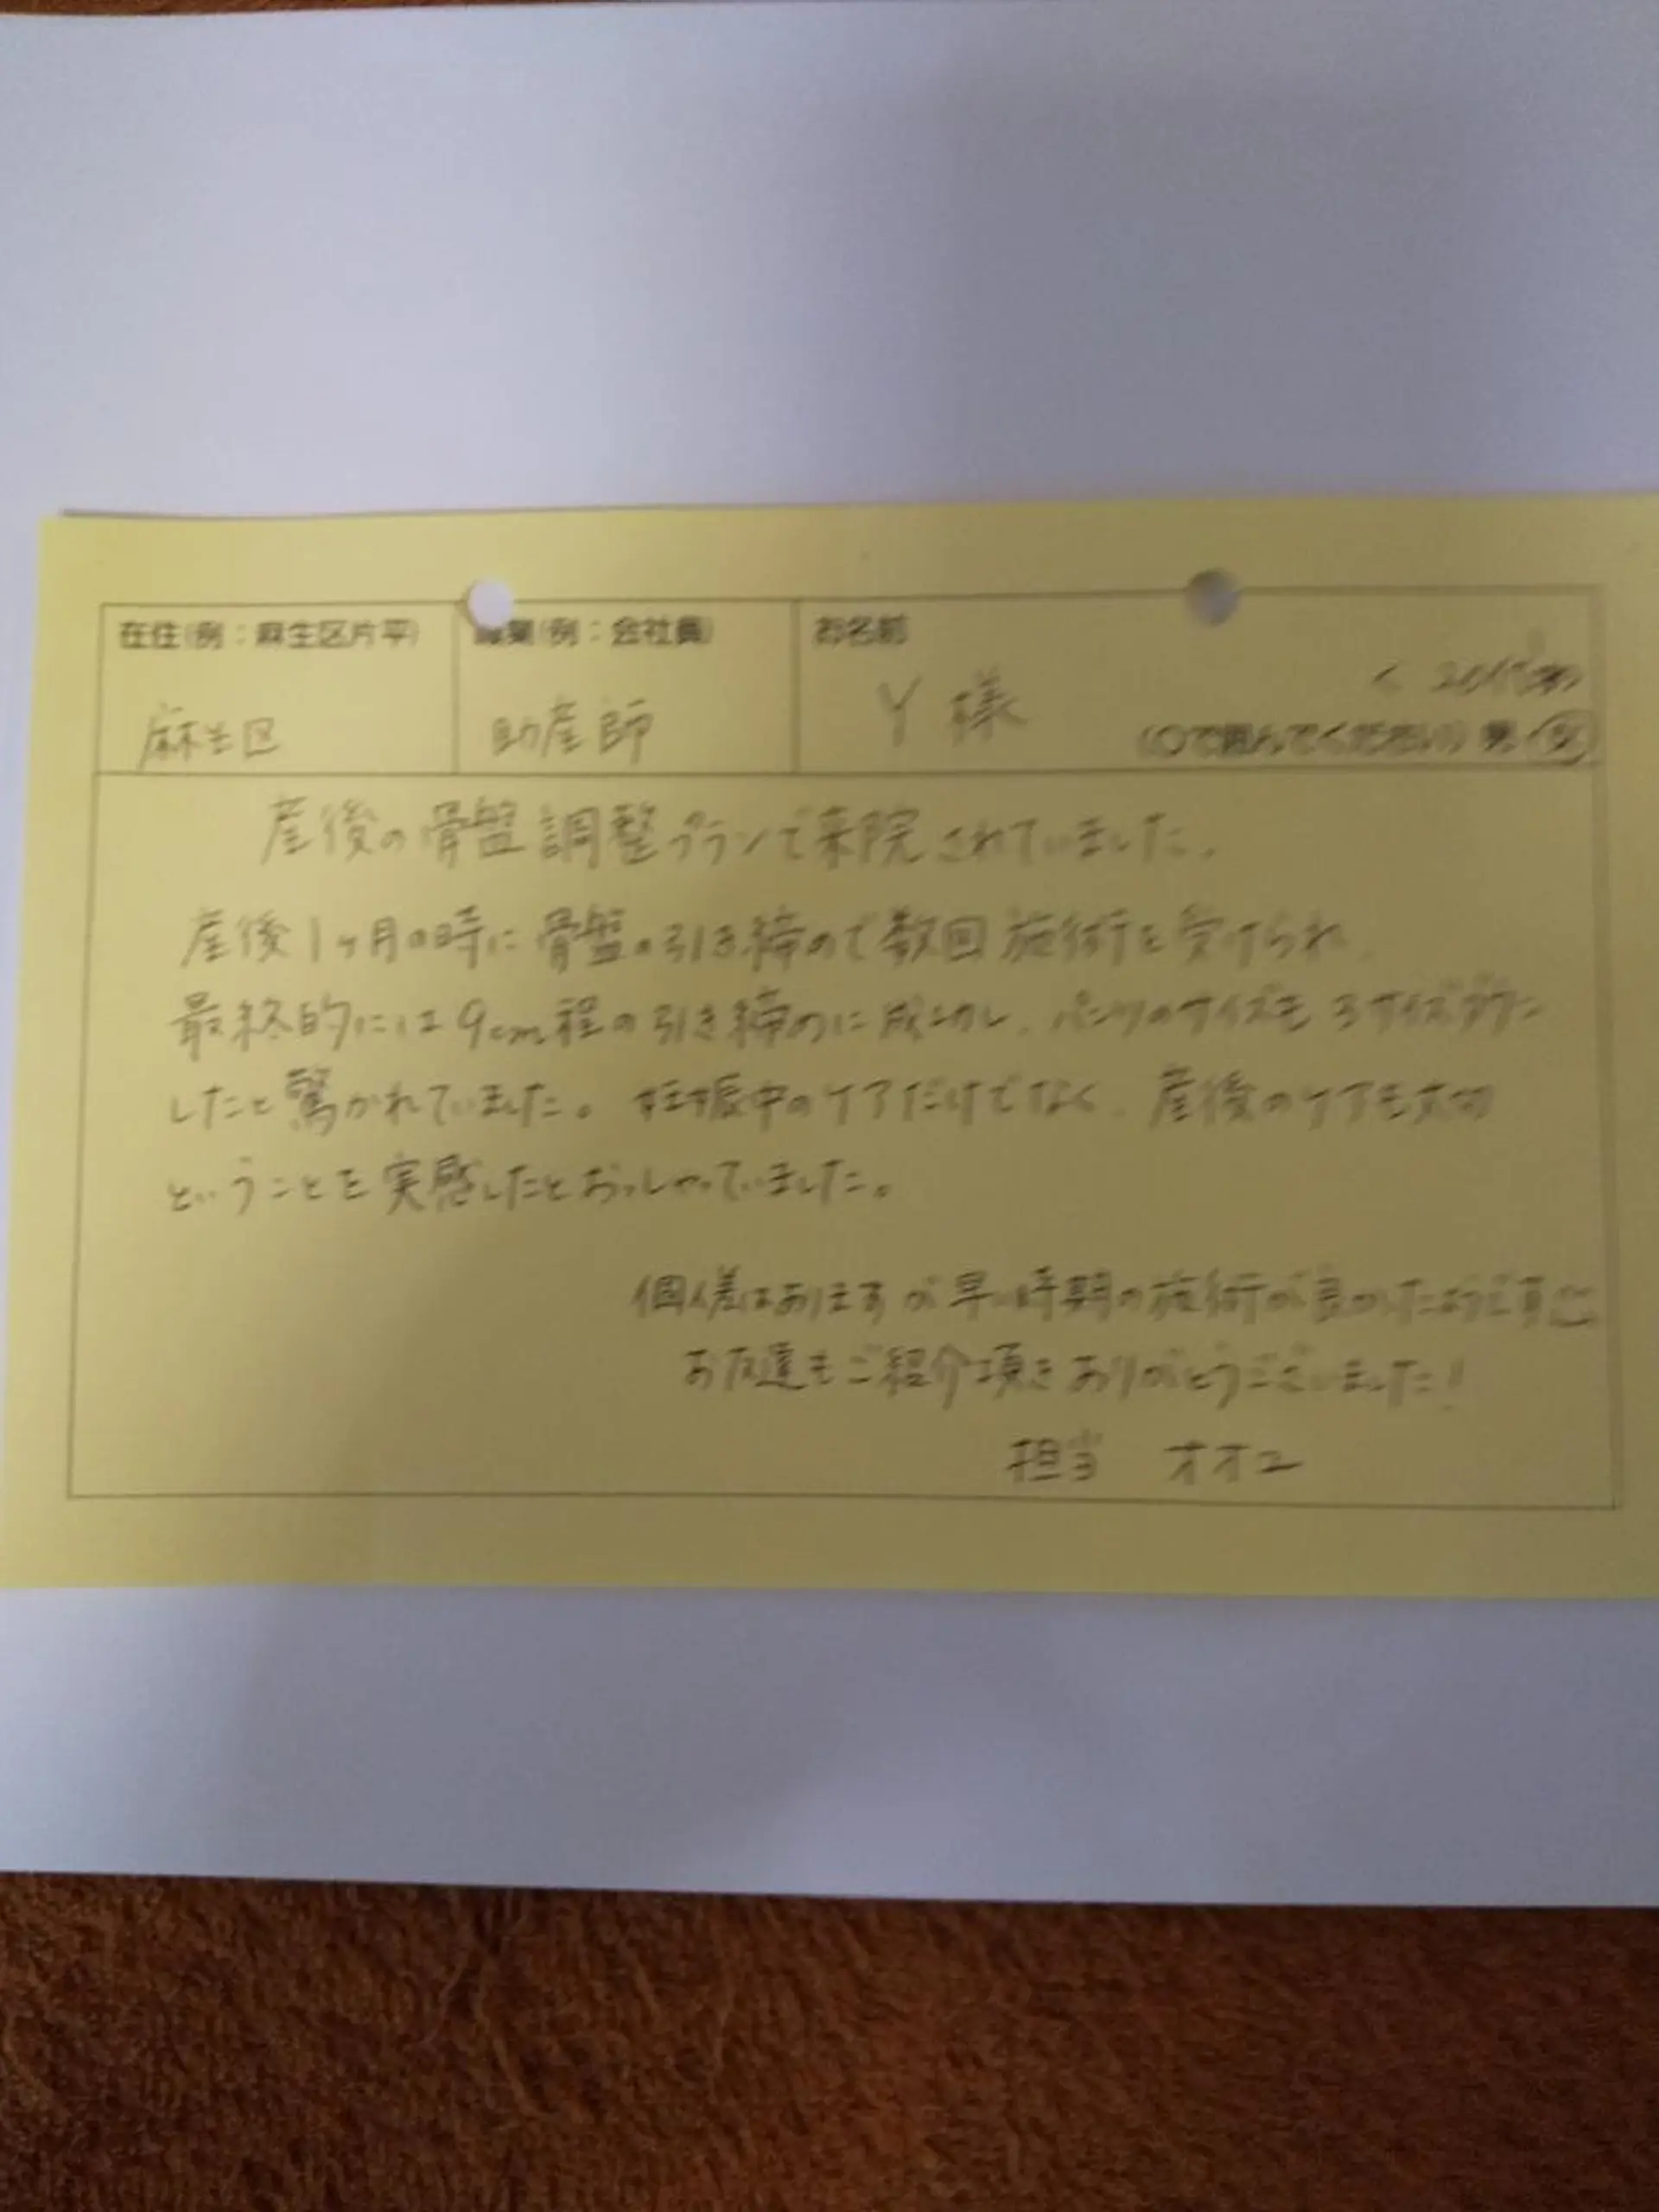 在住(例：麻生区片平)
業(例：会社員)
お名前
麻生区
助産師
Y 様
20代
(○で囲んでください) 男・女
産後の骨盤調整プランで来院されていました。
産後1ヶ月の時に骨盤の引き締めで数回施術を受けられ、
最終的には9cm程の引き締めに成功し、パンツのサイズも3サイズダウン
したと驚かれていました。妊娠中のケアだけでなく、産後のケアも大切
ということを実感したとおっしゃっていました。
個人差はありますが早い時期の施術が良かったようです
お友達もご紹介頂きありがとうございました！
担当 オオユ